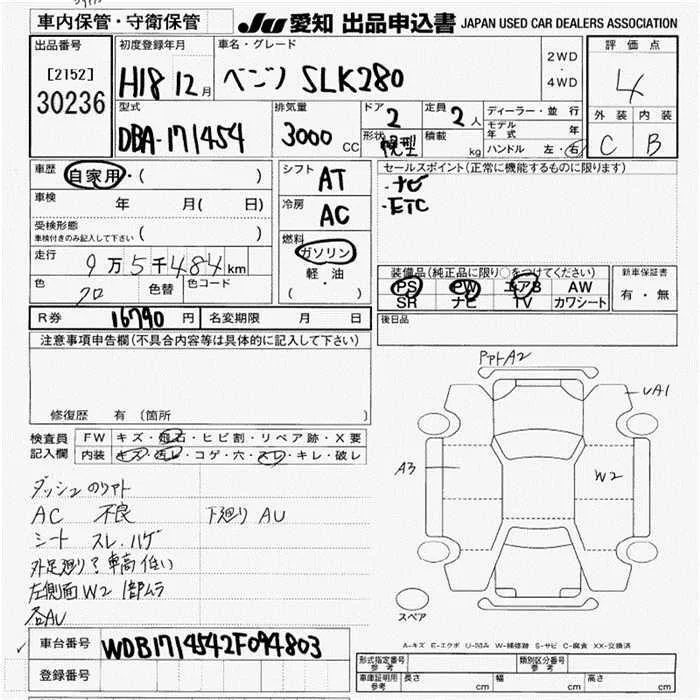 車内保管・守衛保管 JU 愛知 出品申込書 JAPAN USED CAR DEALERS ASSOCIATION
出品番号 [2152] 30236
初度登録年月 H18 12月
車名・グレード ベンツ SLK280
2WD・4WD
評価点 4
外装 C 内装 B
型式 DBA-171454
排気量 3000 CC
ドア 2
形状
定員 2人
積載 kg
ディーラー・並行
モデル年式 年
ハンドル 左・右
車歴 自家用・( )
車検 年 月( 日)
受検形態
車検付きのみ記入して下さい ( )
走行 9万5千484km
色 クロ 色替 色コード
シフト AT
冷房 AC
燃料 ガソリン
軽・油
( )
セールスポイント(正常に機能するものに限ります)
・ナビ
・ETC
装備品(純正品に限り○をつけてください)
PS PW エアB AW
SR ナビ TV カワシート
新車保証書
有・無
後日品
R券 16790円 名変期限 月 日
注意事項申告欄(不具合内容等は具体的に記入して下さい)
修復歴 有 (箇所
検査員記入欄
FW キズ・飛石・ヒビ割・リペア跡・X要
内装 キズ・汚レ・コゲ・穴・スレ・キレ・破レ
AC 不良 下廻り AU
シート スレ・ハゲ
車高 低い
左側面W2
各AU
A2
UA1
A3
W2
スペア
A-キズ E-エクボ U-凹み W-補修跡 S-サビ C-腐食 XX-交換済
車台番号 WDB1714542F094803
登録番号
形式指定番号 参考 類別区分番号 参考
車庫証明用 参考 長さ cm 幅 cm 高さ cm